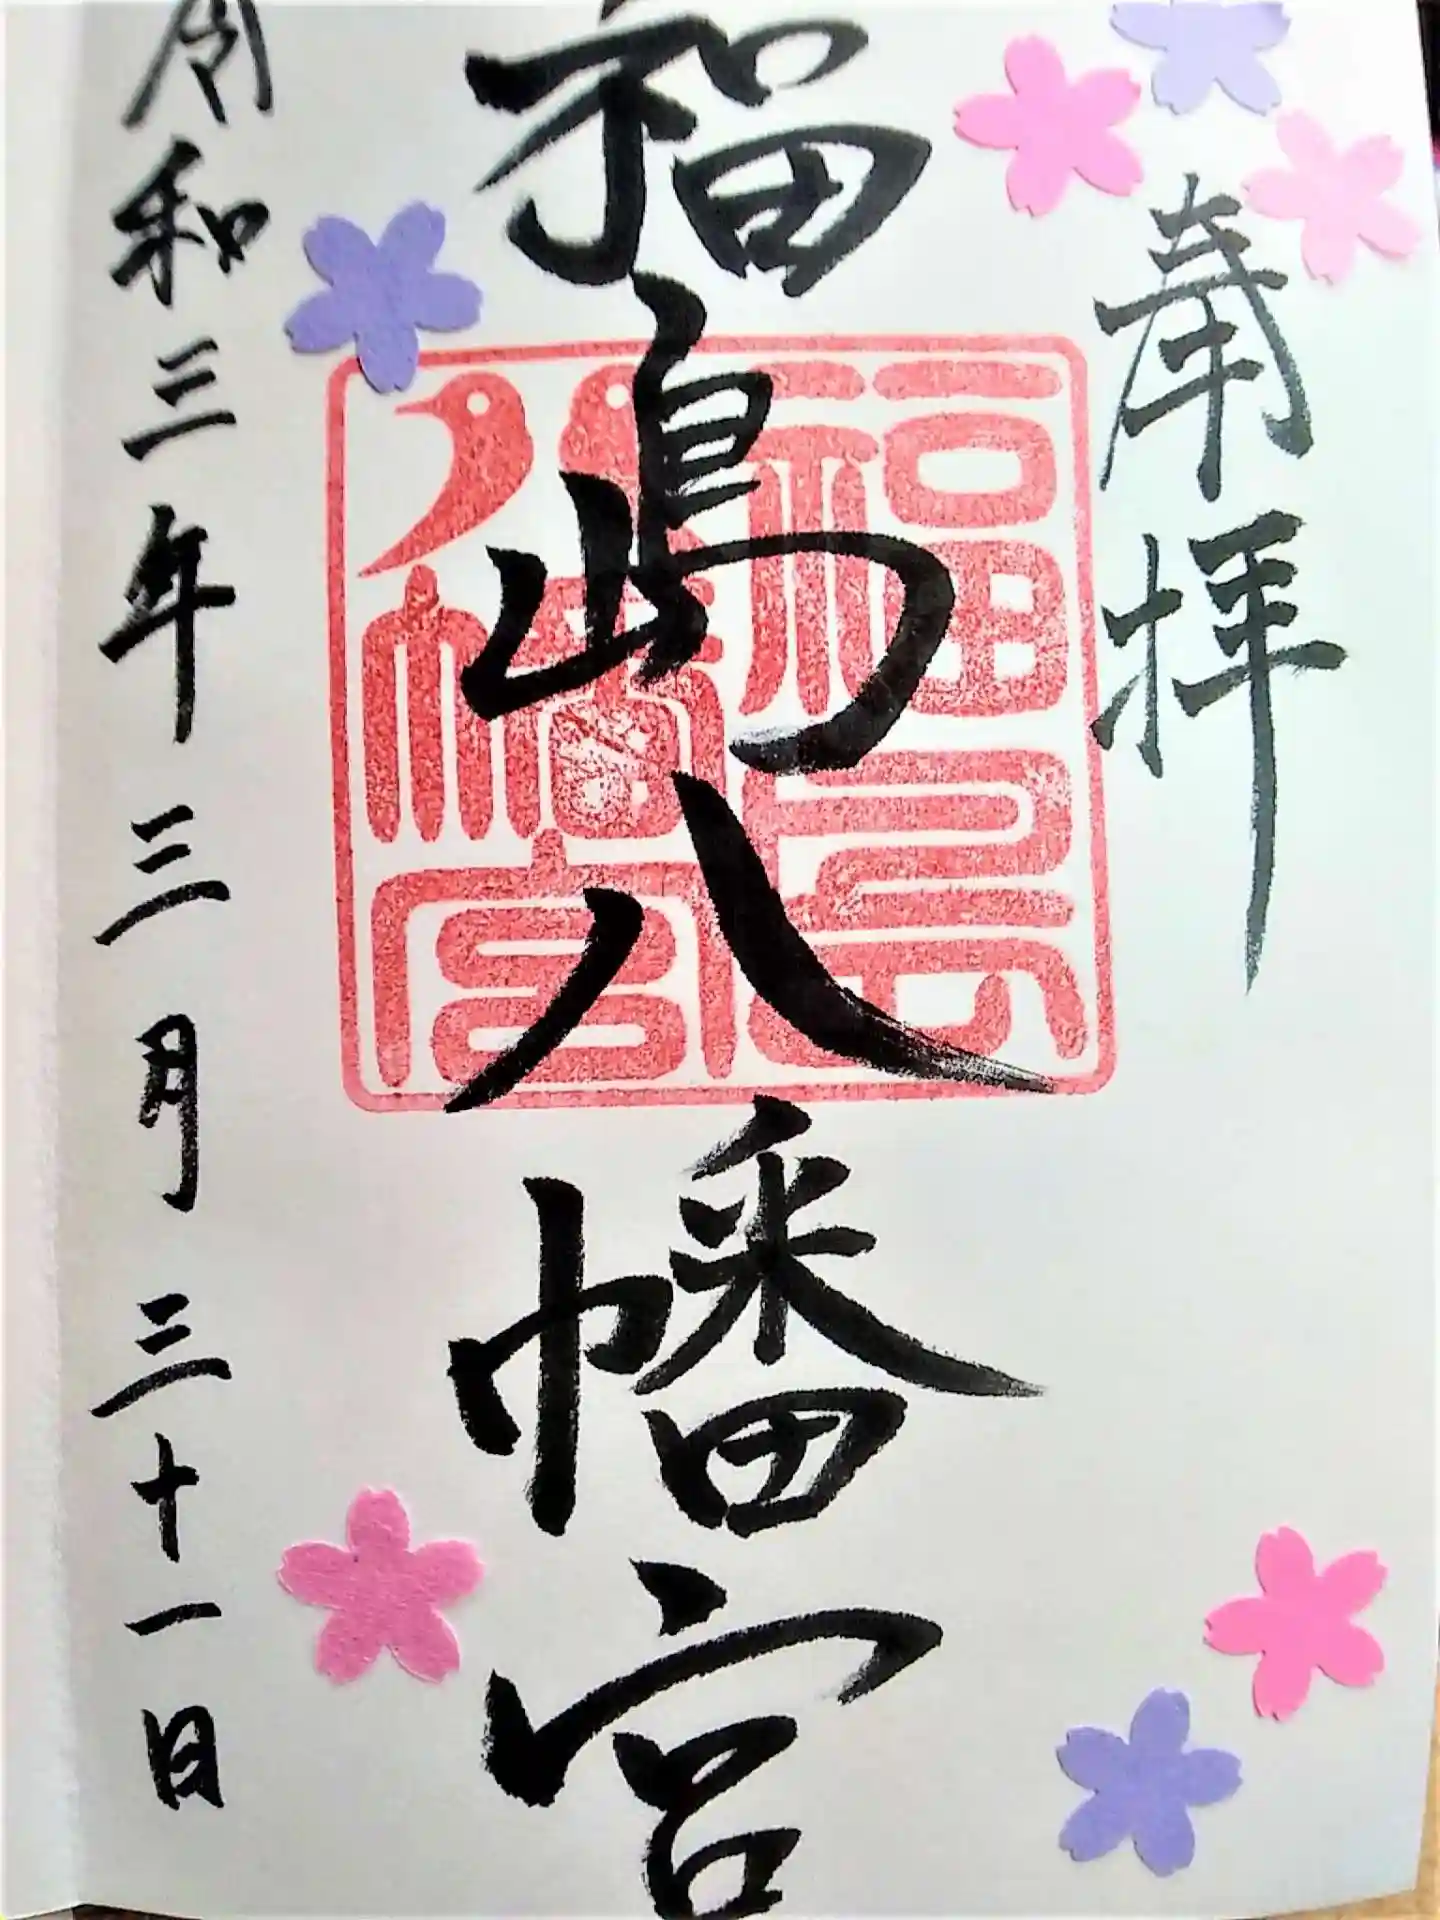 奉拝
福島八幡宮
福島
八幡宮
令和三年三月三十一日